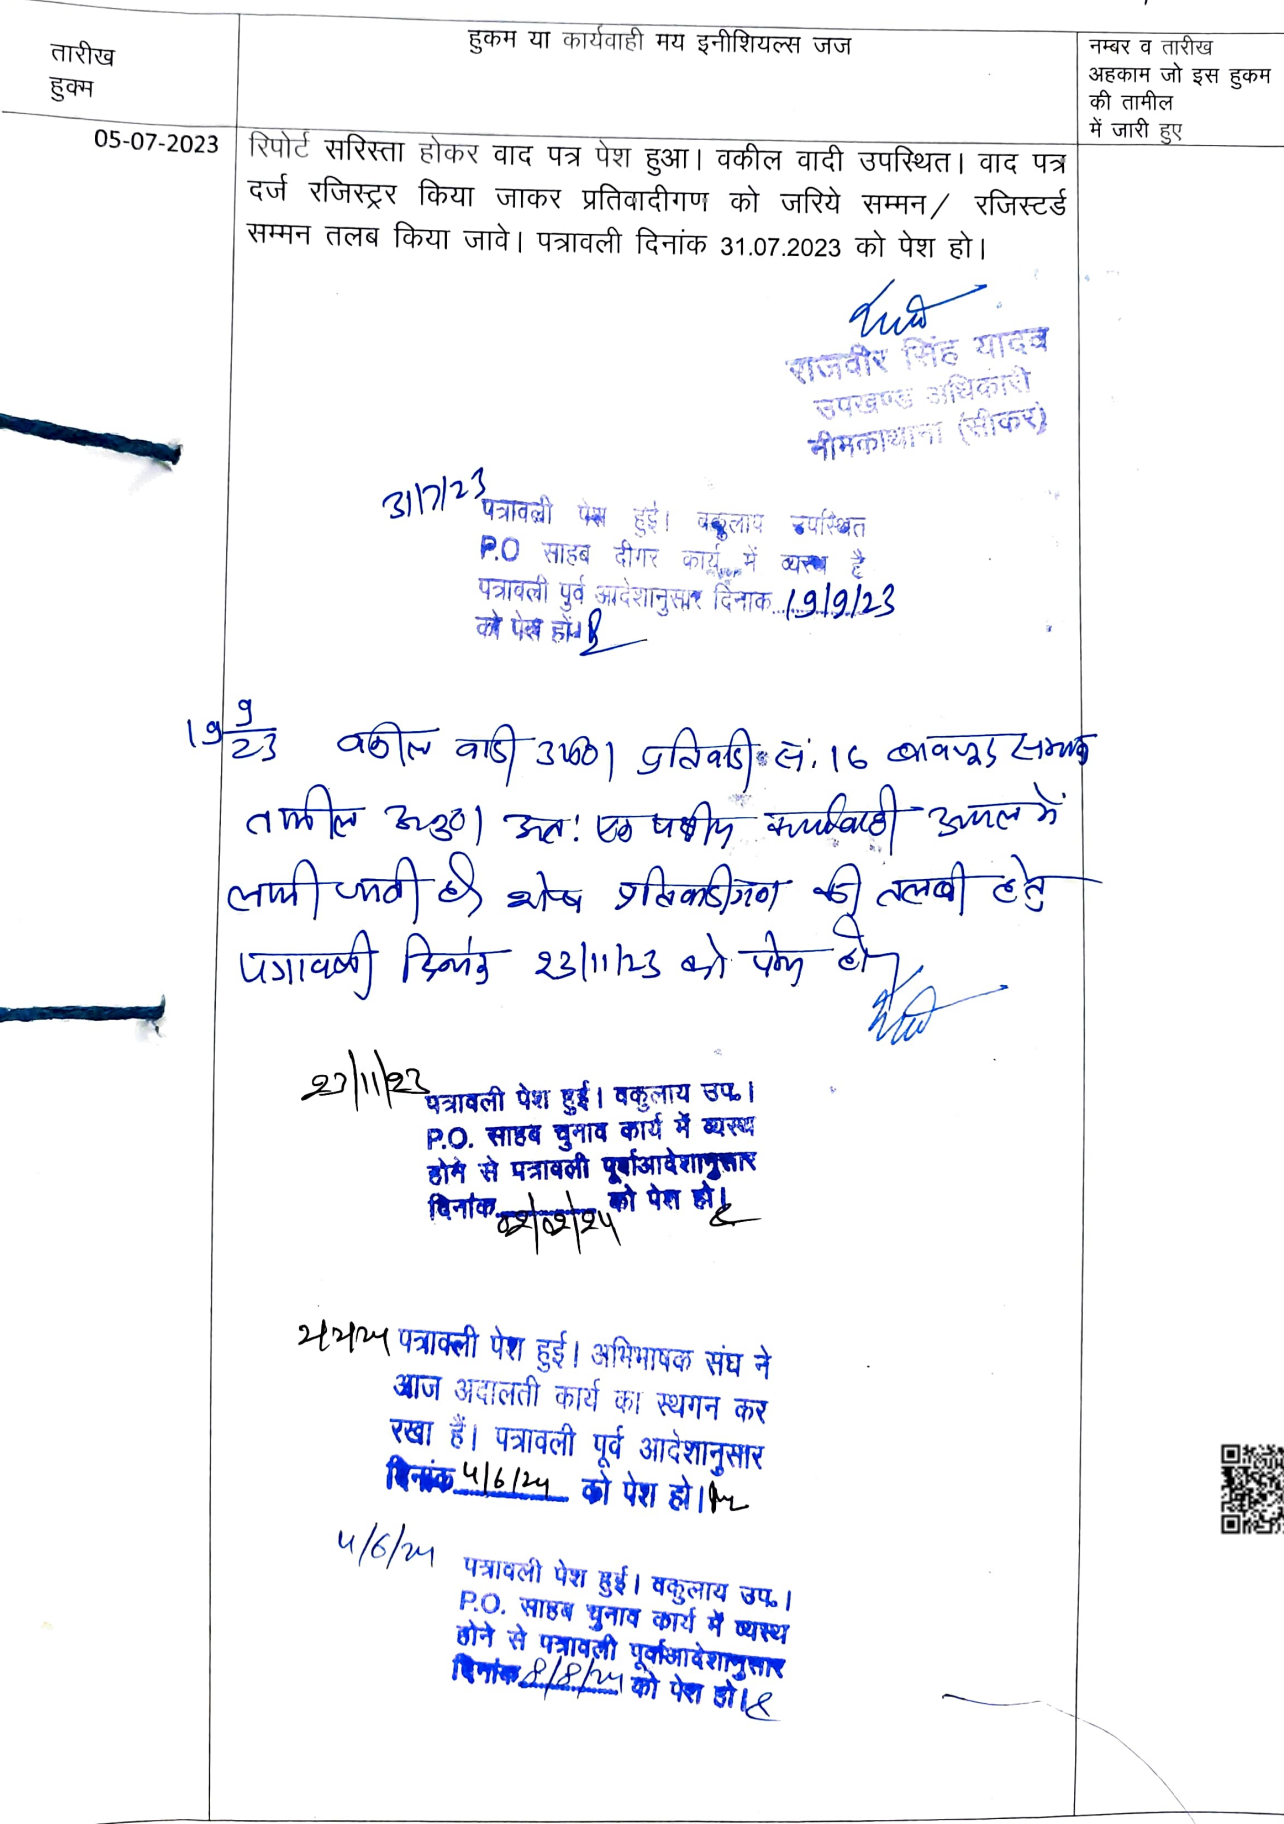 तारीख
हुक्म
हुकम या कार्यवाही मय इनीशियल्स जज
नम्बर व तारीख
अहकाम जो इस हुकम
की तामील
में जारी हुए
05-07-2023
रिपोर्ट सरिस्ता होकर वाद पत्र पेश हुआ। वकील वादी उपस्थित। वाद पत्र
दर्ज रजिस्ट्रर किया जाकर प्रतिवादीगण को जरिये सम्मन/ रजिस्टर्ड
सम्मन तलब किया जावे। पत्रावली दिनांक 31.07.2023 को पेश हो।
राजवीर सिंह यादव
उपखण्ड अधिकारी
नीमकाथाना (सीकर)
31/7/23
पत्रावली पेश हुई। वकुलाय उपस्थित
P.O साहब दीगर कार्य में व्यस्थ है
पत्रावली पुर्व आदेशानुसार दिनाक 19/9/23
को पेश हों।
19 9/23 वकील वादी उप०। प्रतिवादी सं. 16 बावजूद सम्मन
तामील अनु०। अत: एक पक्षीय कार्यवाही अमल में
लायी जाती है। शेष प्रतिवादीगण की तलबी हेतु
पत्रावली दिनांक 23/11/23 को पेश हो
23/11/23
पत्रावली पेश हुई। वकुलाय उप.।
P.O. साहब चुनाव कार्य में व्यस्थ
होने से पत्रावली पूर्वाआदेशानुसार
दिनांक 02/02/24 को पेश हो।
2/2/24
पत्रावली पेश हुई। अभिभाषक संघ ने
आज अदालती कार्य का स्थगन कर
रखा हैं। पत्रावली पूर्व आदेशानुसार
दिनांक 4/6/24 को पेश हो।
4/6/24
पत्रावली पेश हुई। वकुलाय उप.।
P.O. साहब चुनाव कार्य में व्यस्थ
होने से पत्रावली पूर्वाआदेशानुसार
दिनांक 8/8/24 को पेश हो।